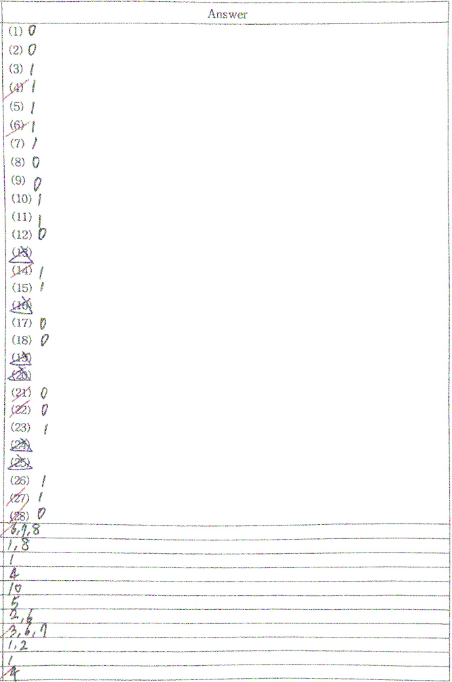 Answer
(1) 0
(2) 0
(3) 1
(4) 1
(5) 1
(6) 1
(7) 1
(8) 0
(9) 0
(10) 1
(11) 1
(12) 0
(13)
(14) 1
(15) 1
(16)
(17) 0
(18) 0
(19)
(20)
(21) 0
(22) 0
(23) 1
(24)
(25)
(26) 1
(27) 1
(28) 0
3,7,8
1,8
1
4
10
5
2,6
3,6,7
1,2
1
4